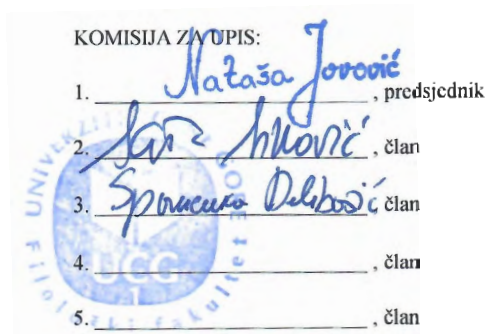 KOMISIJA ZA UPIS:
1. Nataša Jovović, predsjednik
2. , član
3. Spomenka Delibašić, član
4. , član
5. , član
UNIVE
GORE
Filološki fakultet
UCG